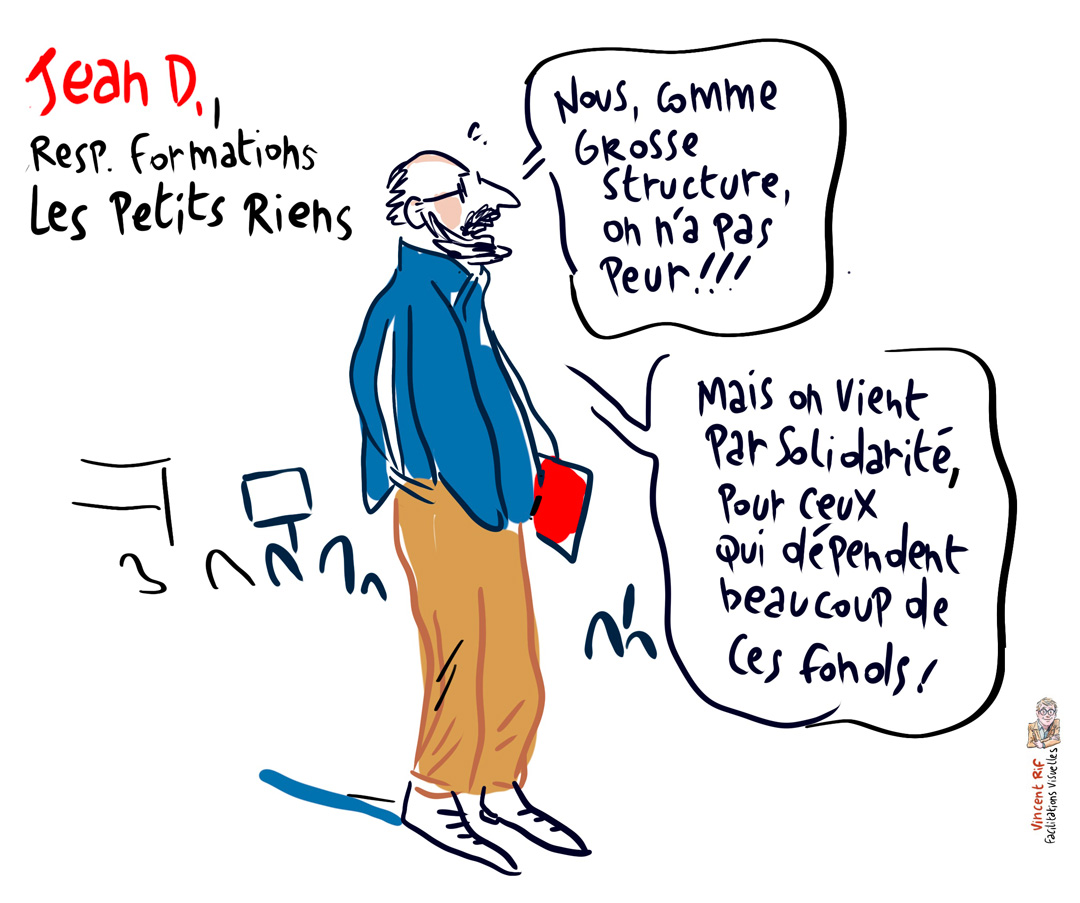 Jean D.,
Resp. Formations
Les Petits Riens
Nous, comme
Grosse
structure,
on n'a pas
peur!!!
Mais on vient
par solidarité,
pour ceux
qui dépendent
beaucoup de
ces fonds!
Vincent Rif
Facilitations Visuelles